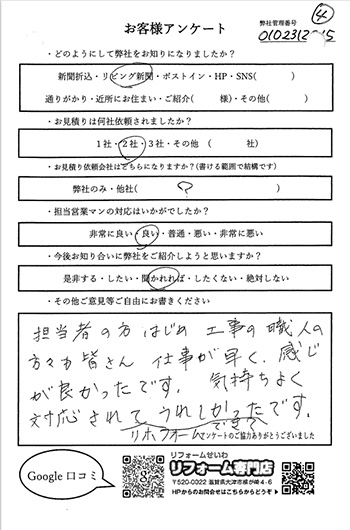 ④
お客様アンケート
弊社管理番号
・どのようにして弊社をお知りになりましたか？
新聞折込・リビング新聞・ポストイン・HP・SNS(　　　)
通りがかり・近所にお住まい・ご紹介(　　　様)・その他(　　　)
・お見積りは何社依頼されましたか？
1社・2社・3社・その他　(　　　社)
・お見積り依頼会社はどちらになりますか？(書ける範囲で結構です)
弊社のみ・他社(　　？　　)
・担当営業マンの対応はいかがでしたか？
非常に良い・良い・普通・悪い・非常に悪い
・今後お知り合いに弊社をご紹介しようと思いますか？
是非する・したい・聞かれれば・したくない・絶対しない
・その他ご意見等ご自由にお書きください
担当者の方はじめ 工事の職人の
方々も皆さん 仕事が早く、感じ
が良かったです。 気持ちよく
対応されて うれしかったです。
リホームできて
アンケートのご協力ありがとうございました
Google 口コミ
リフォームせいわ
リフォーム専門店
〒520-0022 滋賀県大津市柳が崎4-6
HPからのお問合せはこちらからどうぞ